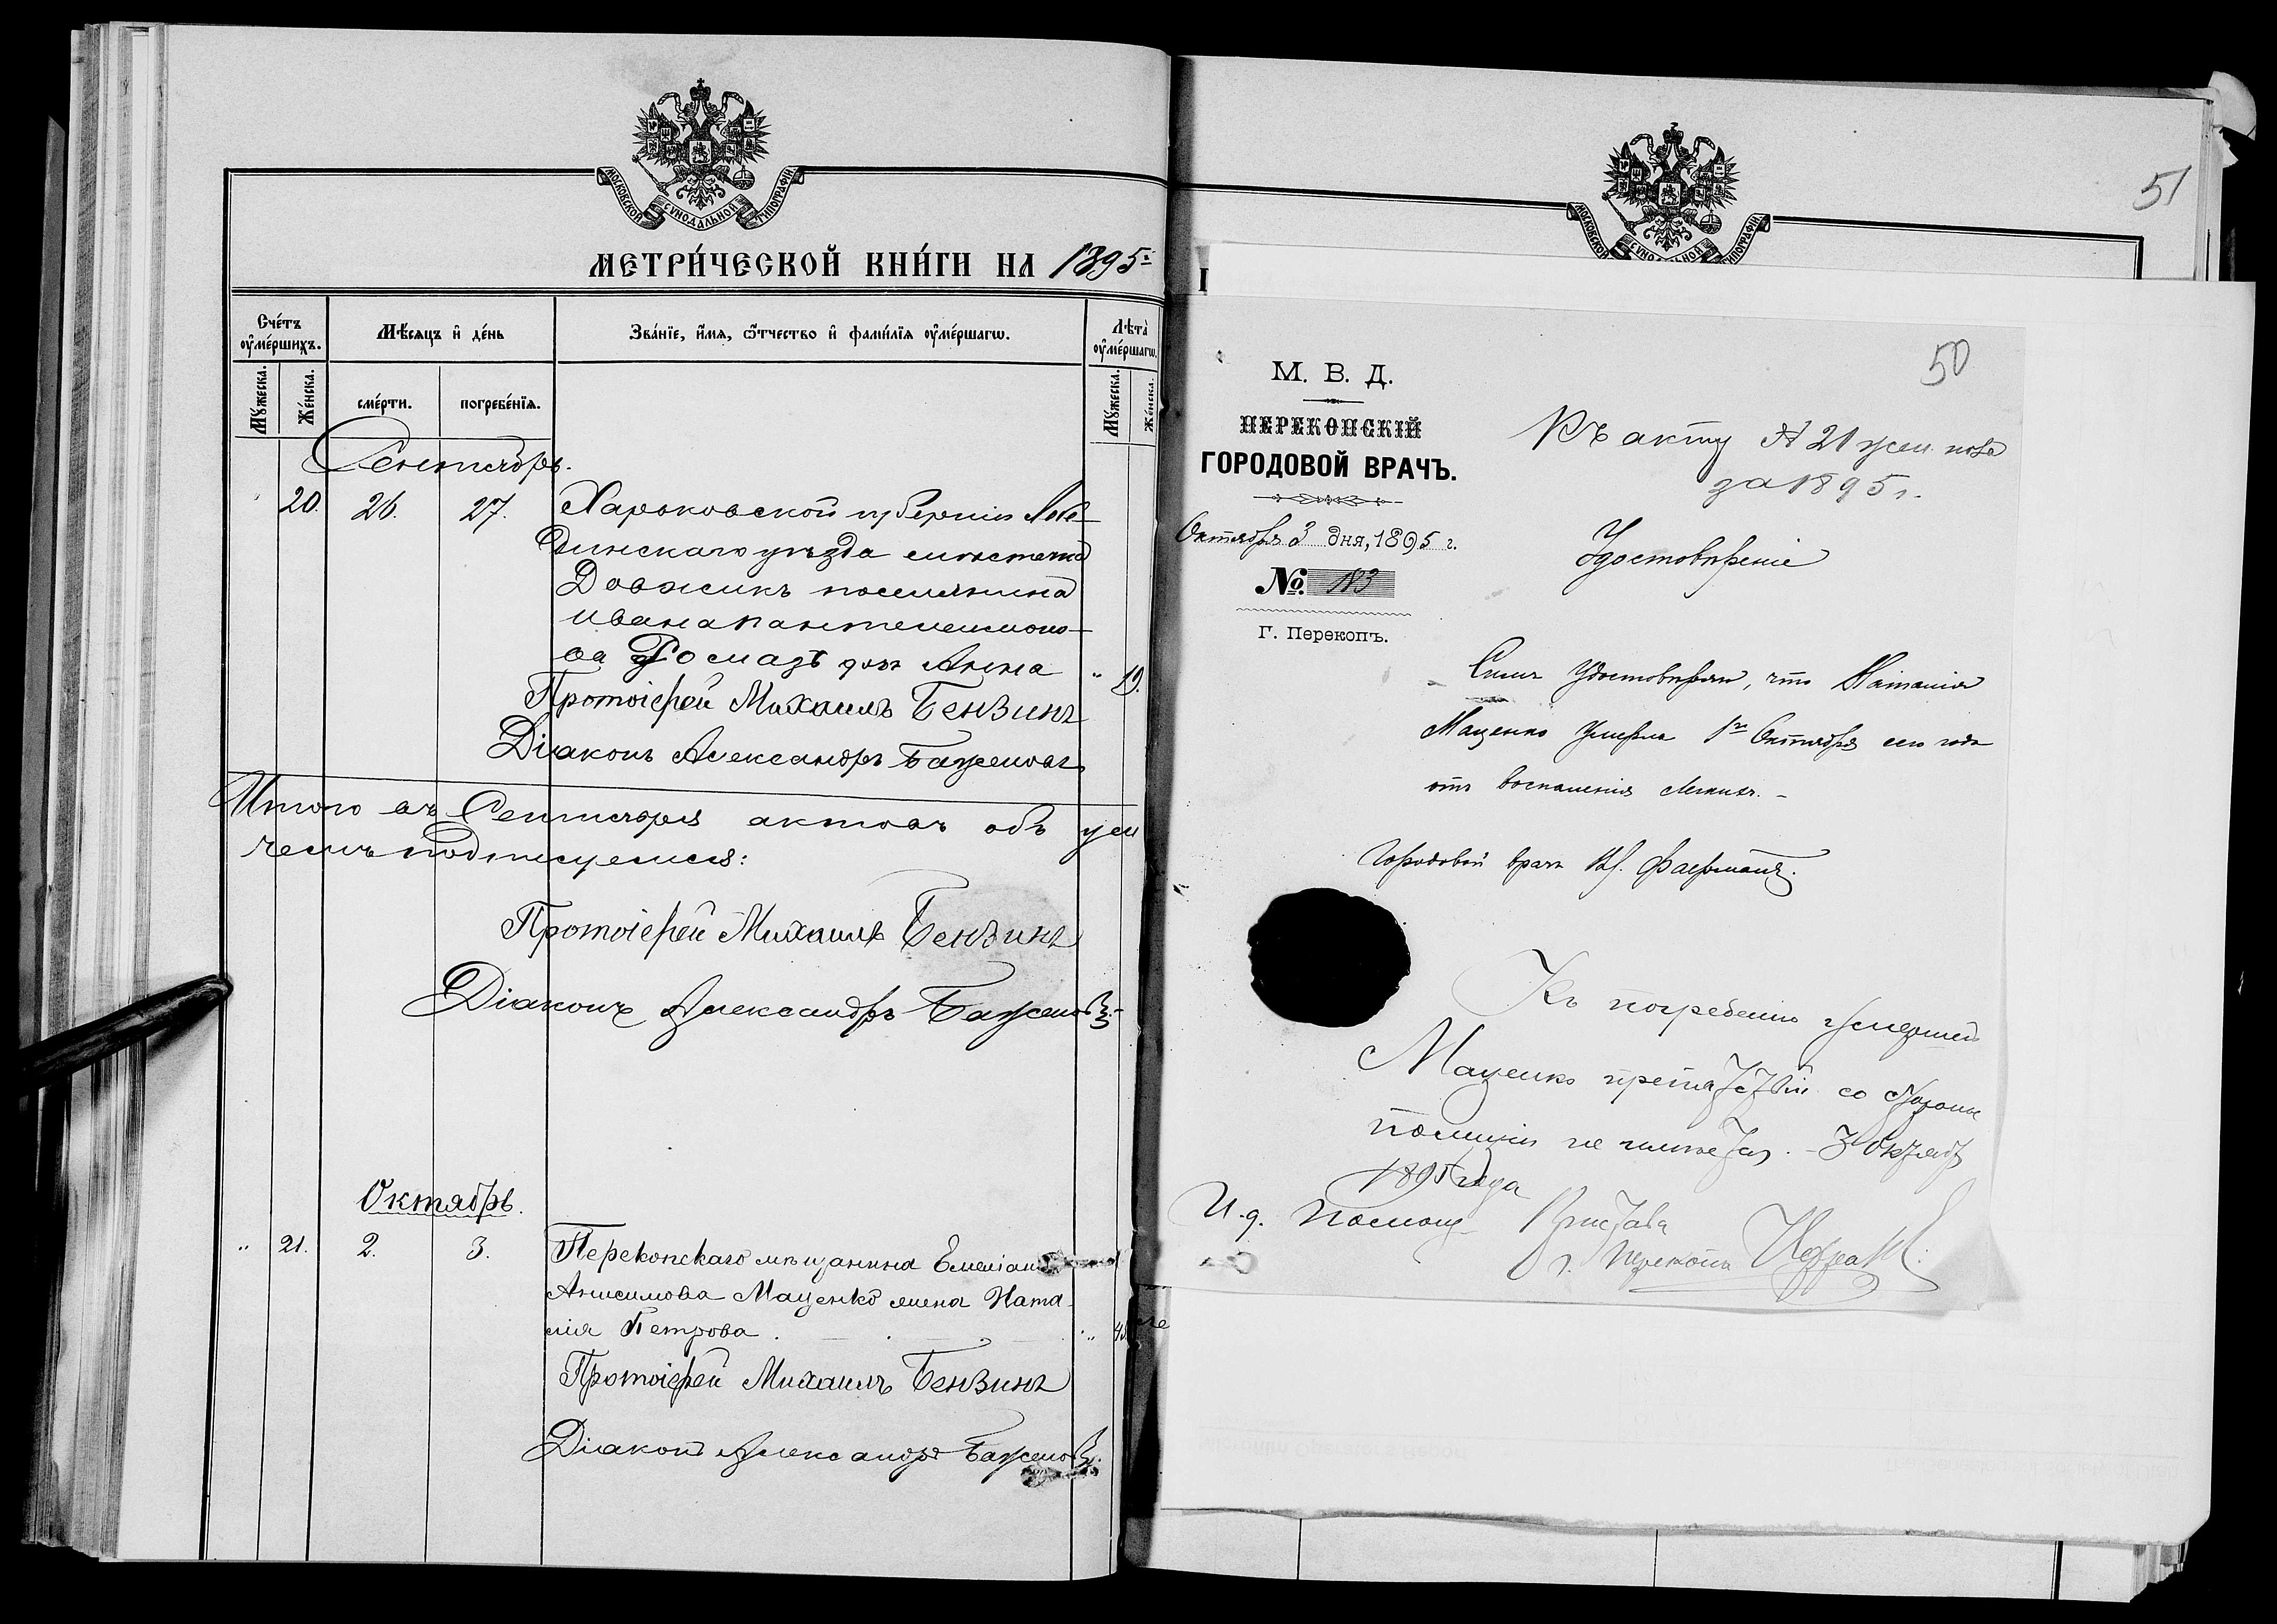 МОСКОВСКОЙ СѴНОДАЛЬНОЙ ТИПОГРАФІИ
МЕТРИ́ЧЕСКОЙ КНИ́ГИ НА 1895
Сче́тъ ᲂу҆ме́ршихъ.
Мѣ́сяцъ и҆ де́нь
Зва́нїе, и҆́мя, ѻ҆́тчество и҆ фами́лїя ᲂу҆ме́ршагѡ.
Лѣ́та ᲂу҆ме́ршагѡ.
Мꙋ́жеска.
Же́нска.
сме́рти.
погребе́нїя.
Мꙋ́жеска.
Же́нска.
Сентябрь.
20. 26. 27. Харьковской губерніи Лебе-
динскаго уѣзда мѣстечка
Должикъ поселянина
Ивана Пантелеимоно-
ва дочь Анна " 19.
Протоіерей Михаилъ Бензинъ
Діаконъ Александръ Баженовъ
Итого въ Сентябрѣ актовъ объ
чемъ подписуемся:
Протоіерей Михаилъ Бензинъ
Діаконъ Александръ Баженовъ
Октябрь.
" 21. 2. 3. Перекопскаго мѣщанина
Анисимова Маценко жена Ната-
лія Петрова "
Протоіерей Михаилъ Бензинъ
Діаконъ Александръ Баженовъ
51
МОСКОВСКОЙ СѴНОДАЛЬНОЙ ТИПОГРАФІИ
50
М. В. Д.
ПЕРЕКОПСКІЙ
ГОРОДОВОЙ ВРАЧЪ.
Октября 3 дня, 1895 г.
№ 183
Г. Перекопъ.
Къ акту № 21 жен. пола
за 1895 г.
Удостовѣреніе
Симъ удостовѣряю, что Наталия
Маценко умерла 1го Октября сего года
отъ воспаленія легкихъ. –
Городовой врачъ
Къ погребенію умершей
Маценко препятствій со стороны
полиціи не имѣется. – 3 Октяб
1895 года
И. д. Помощ. Пристава
г. Перекопа